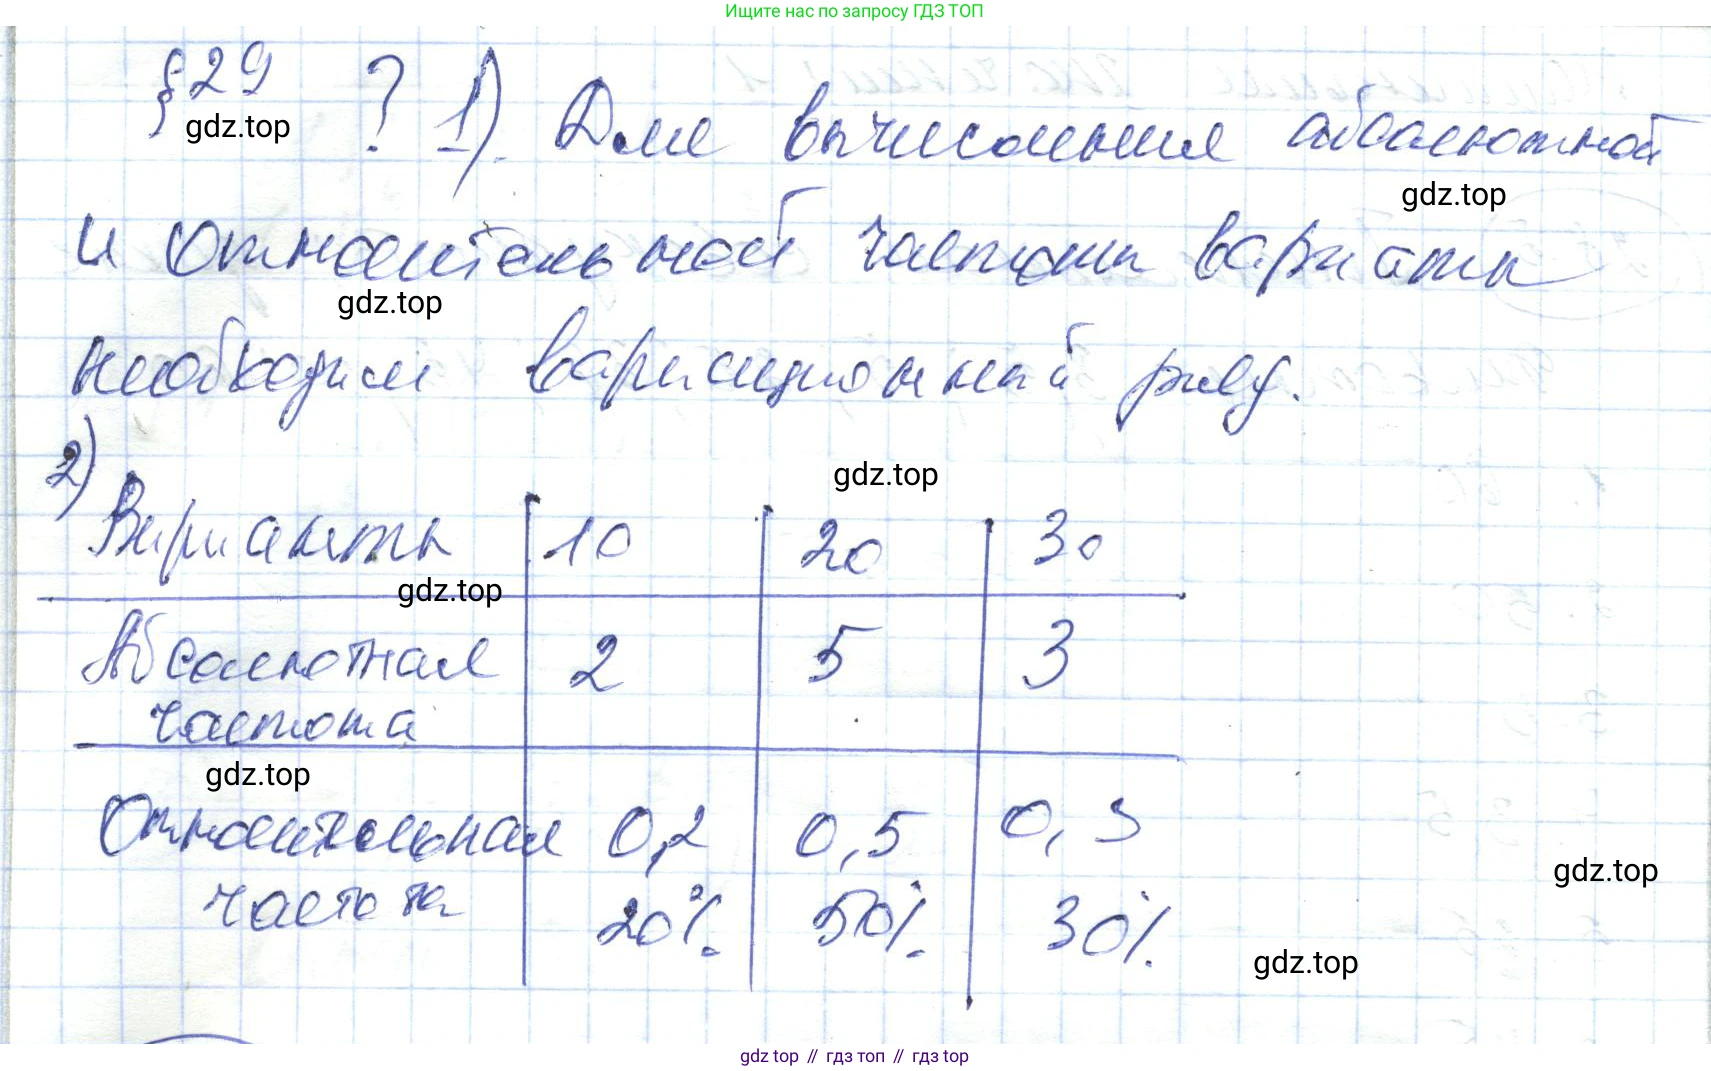 Ищите нас по запросу ГДЗ ТОП
§ 29 ? 1). Для вычисления абсолютной
gdz.top
gdz.top
и относительной частоты варианты
gdz.top
необходим вариационный ряд.
2)
gdz.top
Варианты 10 20 30
gdz.top
Абсолютная 2 5 3
частота
gdz.top
Относительная 0,2 0,5 0,3
gdz.top
частота 20% 50% 30%
gdz.top
gdz top // гдз топ // gdz top